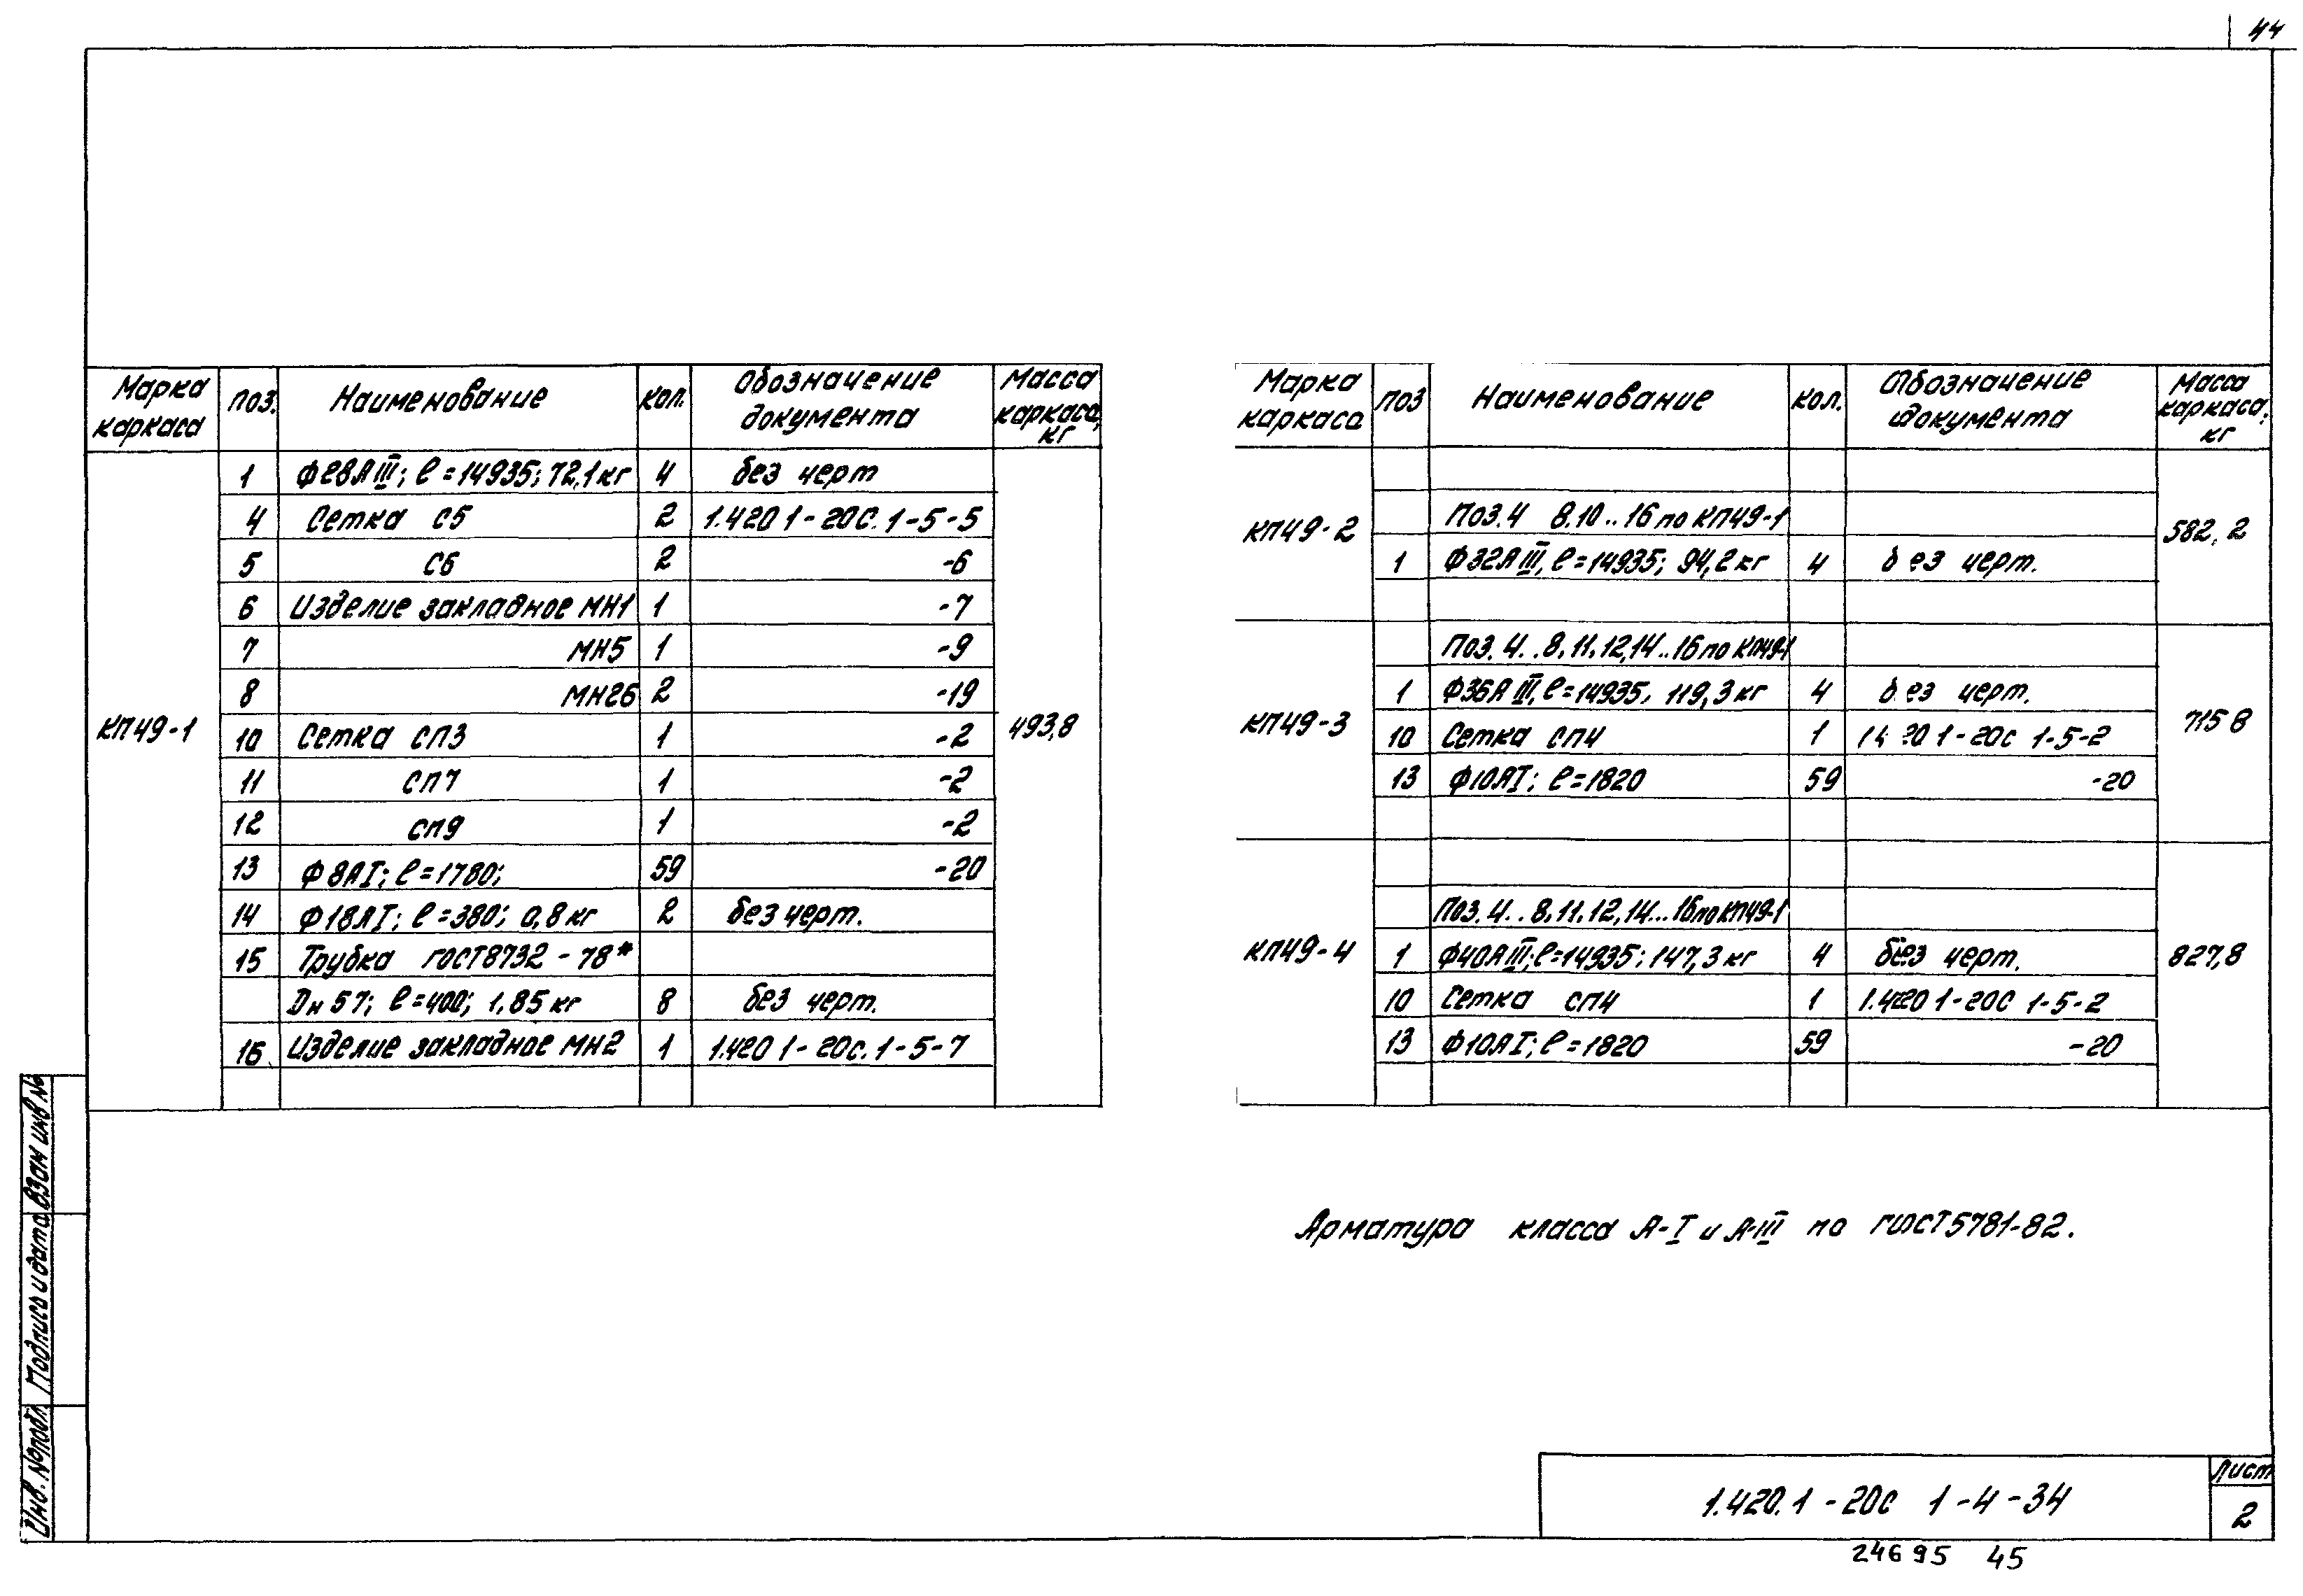 44
Марка каркаса | Поз. | Наименование | Кол. | Обозначение документа | Масса каркаса, кг
КП49-1 | 493,8
1 | Ф28АIII; ℓ=14935; 72,1кг | 4 | без черт
4 | Сетка С5 | 2 | 1.420 1-20С. 1-5-5
5 | С6 | 2 | -6
6 | Изделие закладное МН1 | 1 | -7
7 | МН5 | 1 | -9
8 | МН26 | 2 | -19
10 | Сетка СП3 | 1 | -2
11 | СП7 | 1 | -2
12 | СП9 | 1 | -2
13 | Ф8АI; ℓ=1780; | 59 | -20
14 | Ф18АI; ℓ=380; 0,8кг | 2 | без черт.
15 | Трубка ГОСТ8732-78*
Dн57; ℓ=400; 1,85кг | 8 | без черт.
16 | Изделие закладное МН2 | 1 | 1.420 1-20с. 1-5-7
Марка каркаса | Поз | Наименование | Кол. | Обозначение документа | Масса каркаса, кг
КП49-2 | 582,2
Поз.4 8.10..16 по КП49-1
1 | Ф32АIII, ℓ=14935; 94,2кг | 4 | без черт.
КП49-3 | 715 8
Поз.4..8,11,12,14..16 по КП49-1
1 | Ф36АIII, ℓ=14935, 119,3кг | 4 | без черт.
10 | Сетка СП4 | 1 | 1 4 20 1-20с 1-5-2
13 | Ф10АI; ℓ=1820 | 59 | -20
КП49-4 | 827,8
Поз.4..8,11,12,14...16 по КП49-1
1 | Ф40АIII; ℓ=14935; 147,3кг | 4 | без черт.
10 | Сетка СП4 | 1 | 1.420 1-20С 1-5-2
13 | Ф10АI; ℓ=1820 | 59 | -20
Арматура класса А-I и А-III по ГОСТ5781-82.
Взам инв №
Подпись и дата
Инв. № подл.
1.420.1-20с 1-4-34
Лист
2
24695 45